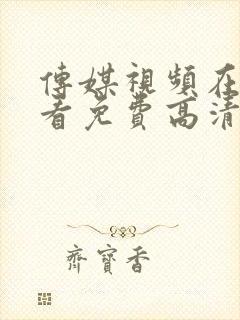 傳媒視頻在
看免費高清
齊寶香